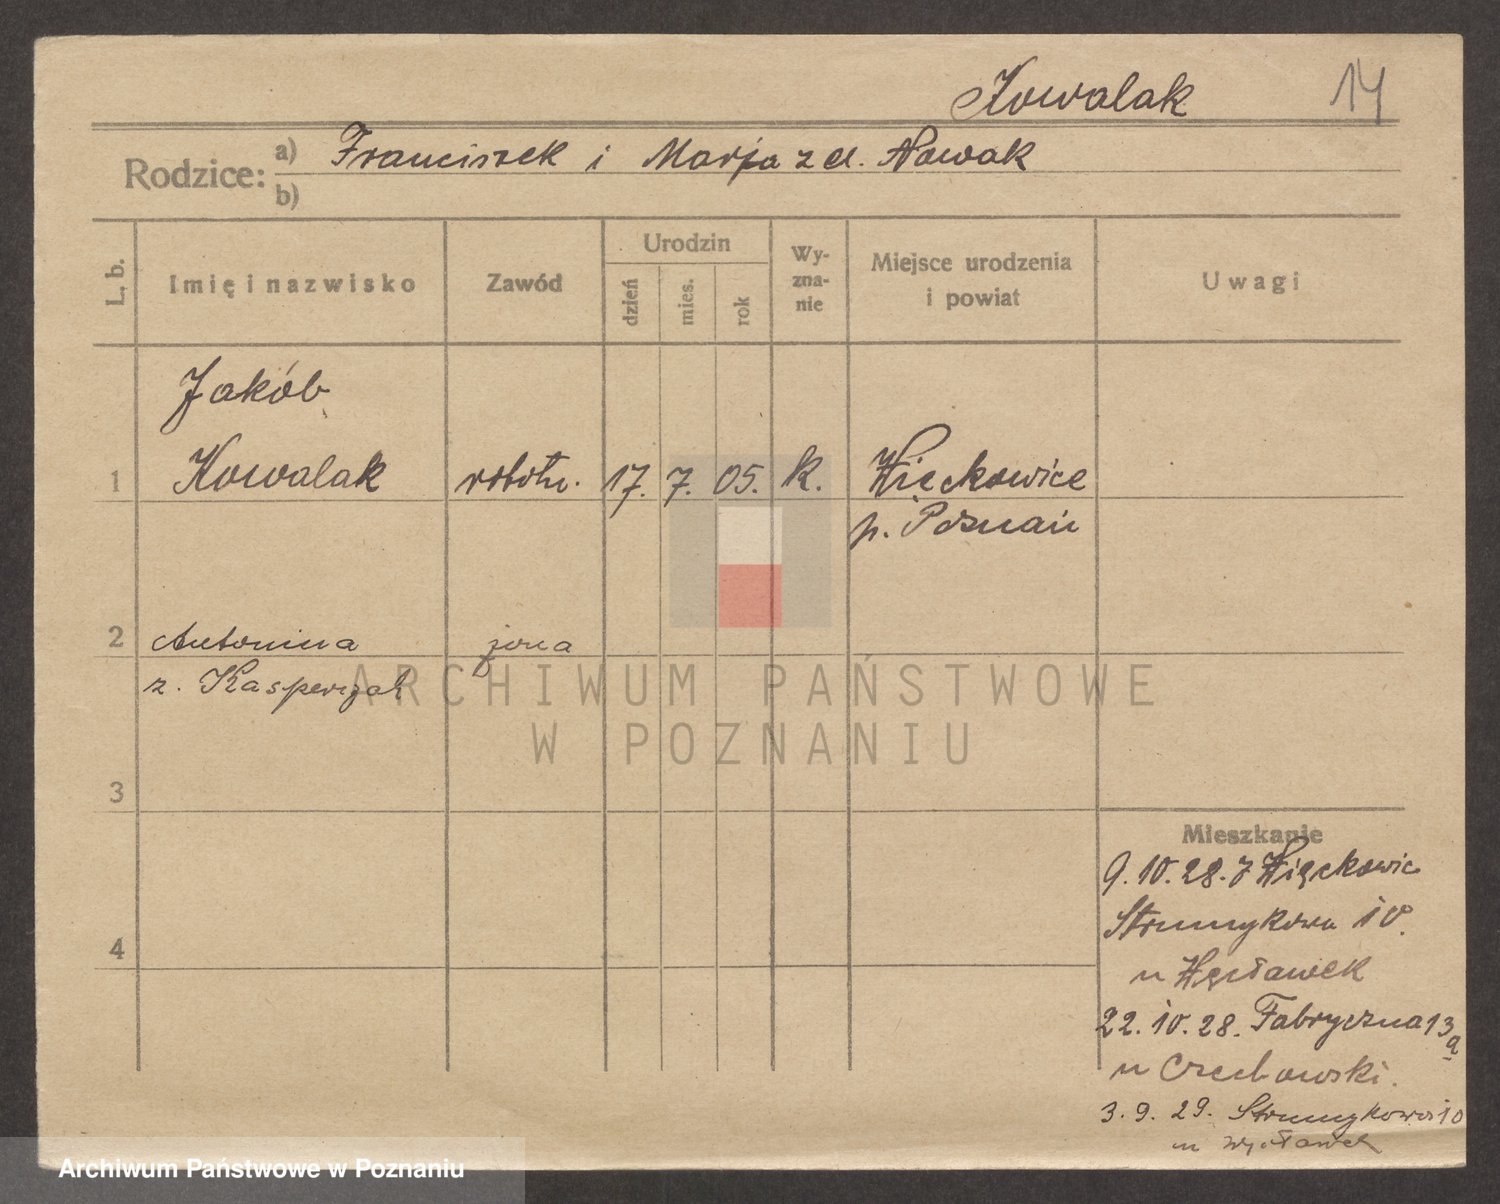 Kowalak 14
Rodzice: a) Franciszek i Marja z d. Nowak
b)
L. b. Imię i nazwisko Zawód Urodzin dzień mies. rok Wy-zna-nie Miejsce urodzenia i powiat Uwagi
Jakób
1 Kowalak robotn. 17. 7. 05. k. Więckowice
p. Poznań
2 Antonina żona
z. Kasperczak
ARCHIWUM PAŃSTWOWE
W POZNANIU
3
Mieszkanie
9.10.28. z Więckowic
Strumykowa 10.
4
u Węcławek
22.10.28. Fabryczna 13a
u Czechowski.
3.9.29. Strumykowa 10
u Węcławek
Archiwum Państwowe w Poznaniu